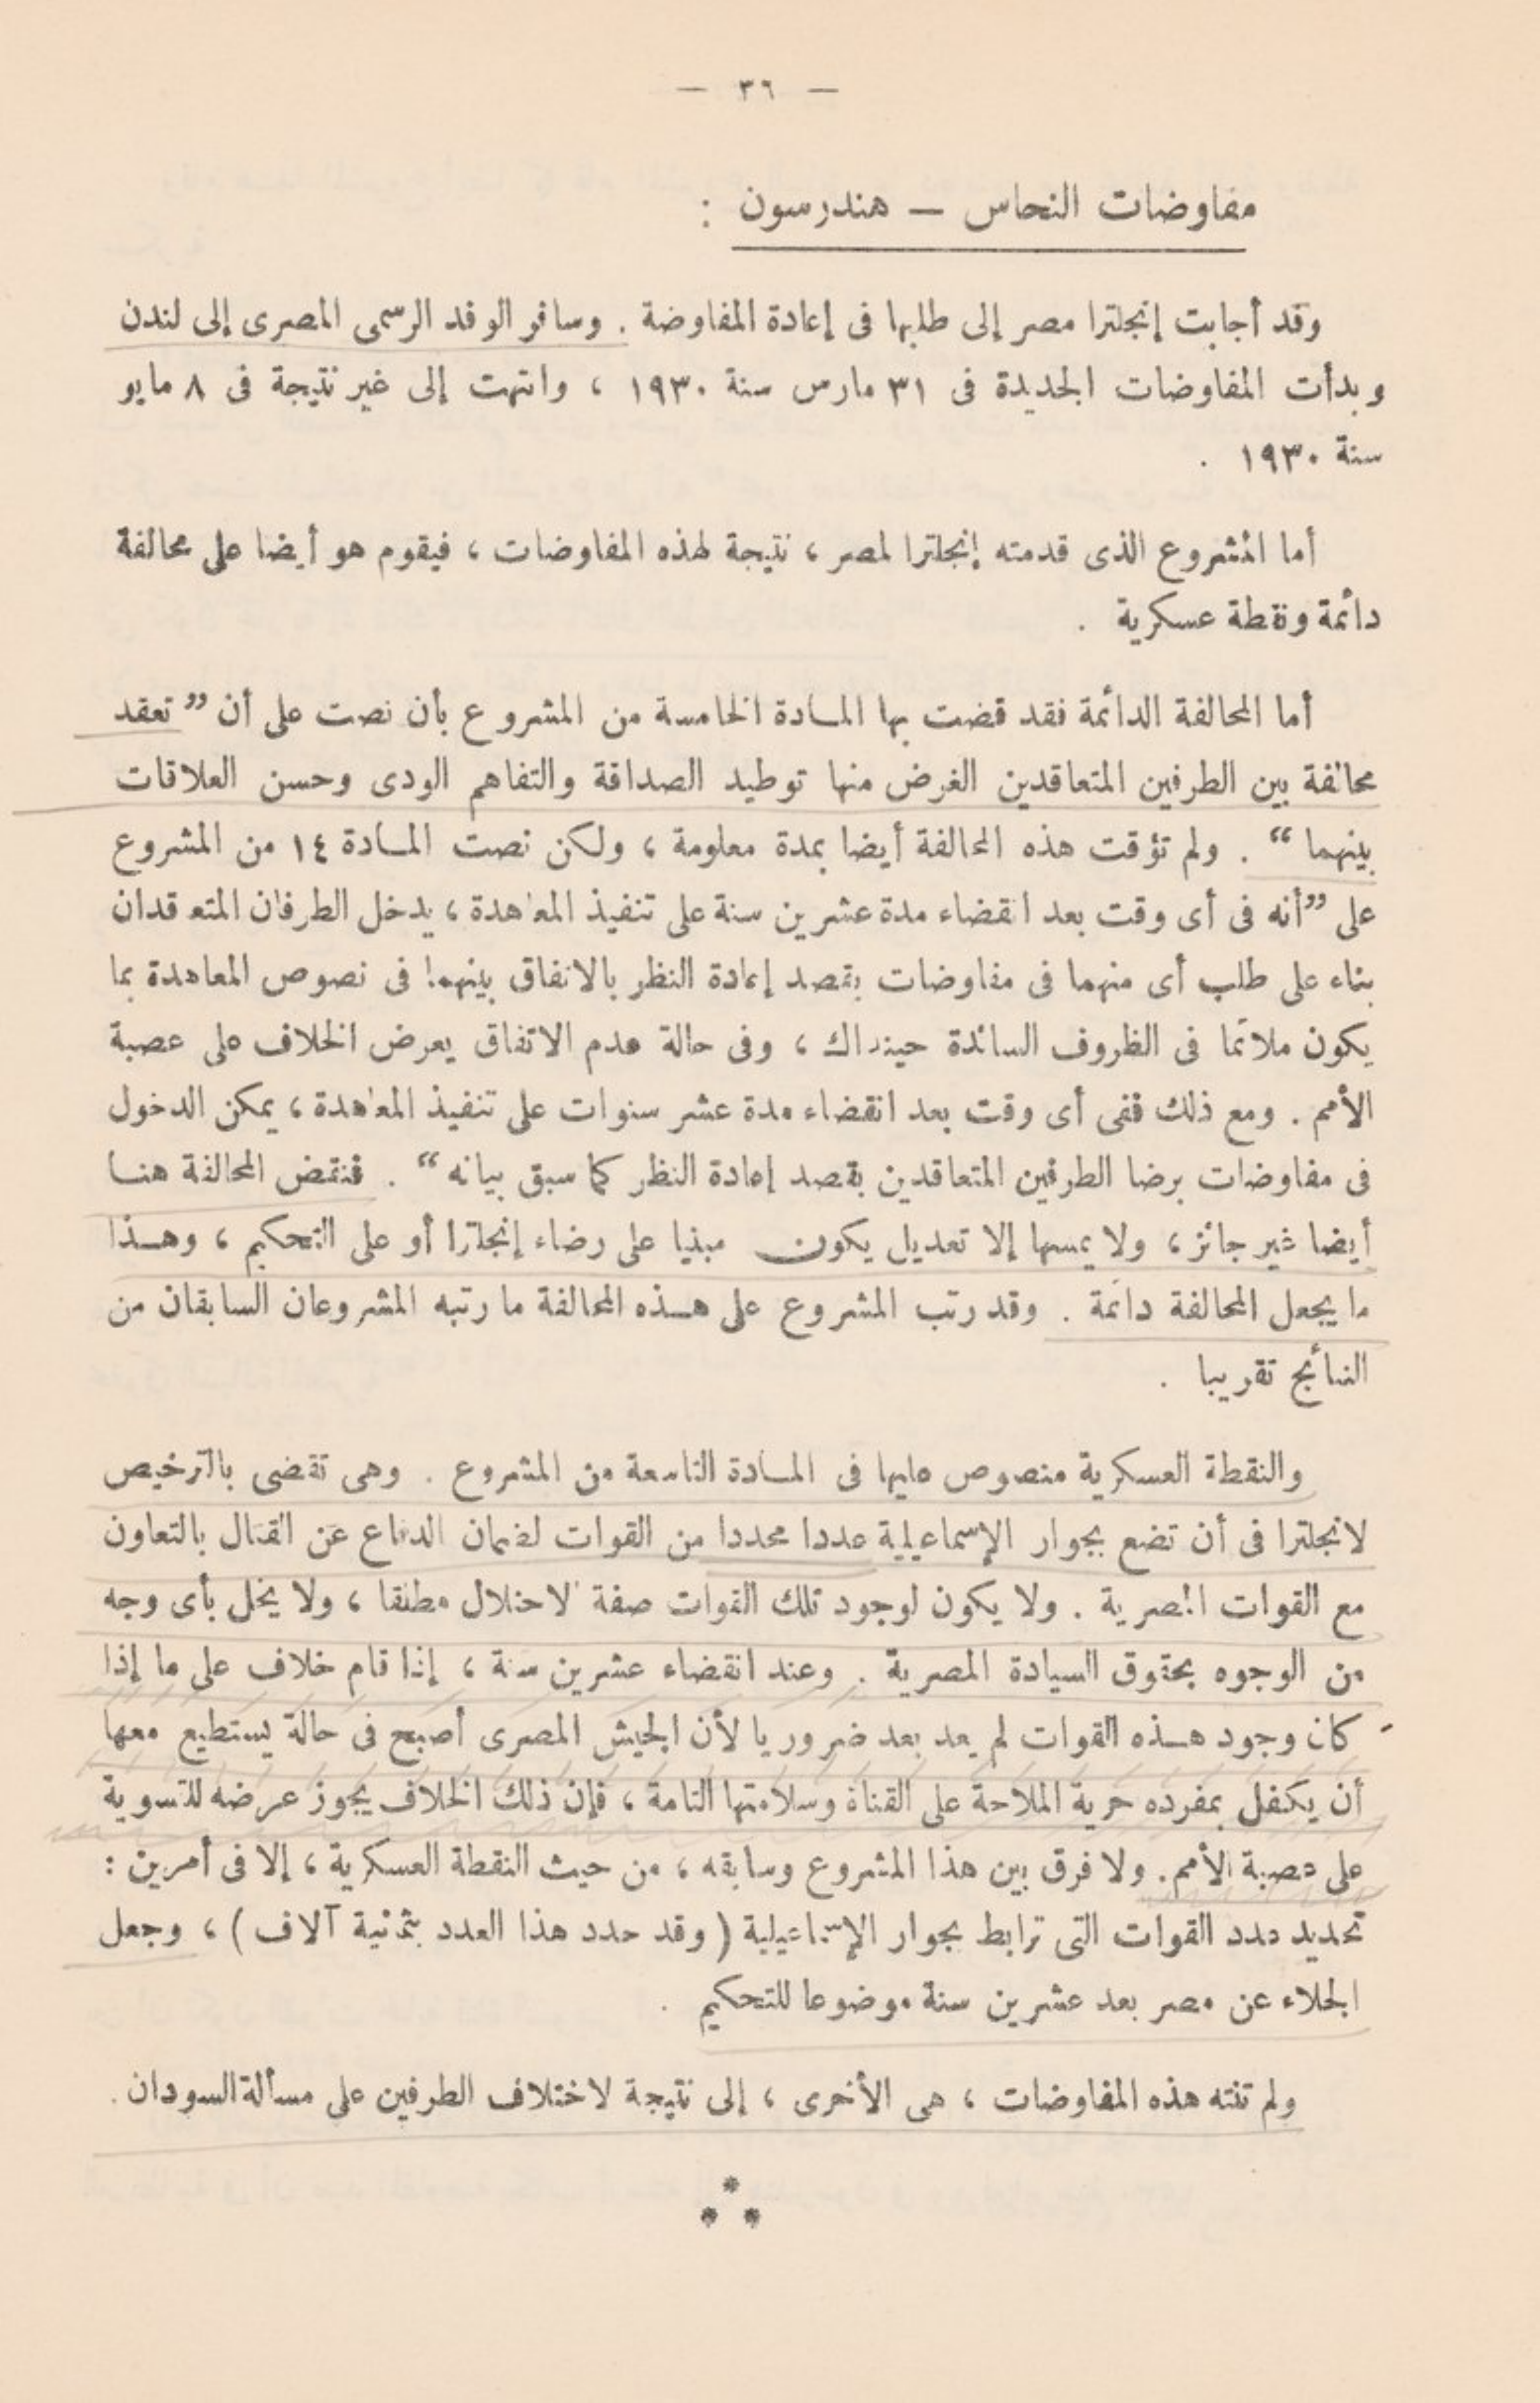 — ٣٦ —
مفاوضات النحاس — هندرسون :
وقد أجابت إنجلترا مصر إلى طلبها فى إعادة المفاوضة . وسافر الوفد الرسمى المصرى إلى لندن
وبدأت المفاوضات الجديدة فى ٣١ مارس سنة ١٩٣٠ ، وانتهت إلى غير نتيجة فى ٨ مايو
سنة ١٩٣٠ .
أما المشروع الذى قدمته إنجلترا لمصر ، نتيجة لهذه المفاوضات ، فيقوم هو أيضا على محالفة
دائمة ونقطة عسكرية .
أما المحالفة الدائمة فقد قضت بها المادة الخامسة من المشروع بأن نصت على أن ”تعقد
محالفة بين الطرفين المتعاقدين الغرض منها توطيد الصداقة والتفاهم الودى وحسن العلاقات
بينهما“ . ولم تؤقت هذه المحالفة أيضا بمدة معلومة ، ولكن نصت المادة ١٤ من المشروع
على ”أنه فى أى وقت بعد انقضاء مدة عشرين سنة على تنفيذ المعاهدة ، يدخل الطرفان المتعاقدان
بناء على طلب أى منهما فى مفاوضات بقصد إعادة النظر بالاتفاق بينهما فى نصوص المعاهدة بما
يكون ملائما فى الظروف السائدة حينذاك ، وفى حالة عدم الاتفاق يعرض الخلاف على عصبة
الأمم . ومع ذلك ففى أى وقت بعد انقضاء مدة عشر سنوات على تنفيذ المعاهدة ، يمكن الدخول
فى مفاوضات برضا الطرفين المتعاقدين بقصد إعادة النظر كما سبق بيانه“ . فنقض المحالفة هنا
أيضا غير جائز ، ولا يمسها إلا تعديل يكون مبنيا على رضاء إنجلترا أو على التحكيم ، وهذا
ما يجعل المحالفة دائمة . وقد رتب المشروع على هذه المحالفة ما رتبه المشروعان السابقان من
النتائج تقريبا .
والنقطة العسكرية منصوص عليها فى المادة التاسعة من المشروع . وهى تقضى بالترخيص
لانجلترا فى أن تضع بجوار الإسماعيلية عددا محددا من القوات لضمان الدفاع عن القنال بالتعاون
مع القوات المصرية . ولا يكون لوجود تلك القوات صفة الاحتلال مطلقا ، ولا يخل بأى وجه
من الوجوه بحقوق السيادة المصرية . وعند انقضاء عشرين سنة ، إذا قام خلاف على ما إذا
كان وجود هذه القوات لم يعد بعد ضروريا لأن الجيش المصرى أصبح فى حالة يستطيع معها
أن يكفل بمفرده حرية الملاحة على القناة وسلامتها التامة ، فإن ذلك الخلاف يجوز عرضه للتسوية
على عصبة الأمم . ولا فرق بين هذا المشروع وسابقه ، من حيث النقطة العسكرية ، إلا فى أمرين :
تحديد عدد القوات التى ترابط بجوار الإسماعيلية (وقد حدد هذا العدد بثمانية آلاف) ، وجعل
الجلاء عن مصر بعد عشرين سنة موضوعا للتحكيم .
ولم تنته هذه المفاوضات ، هى الأخرى ، إلى نتيجة لاختلاف الطرفين على مسألة السودان .
*
* *